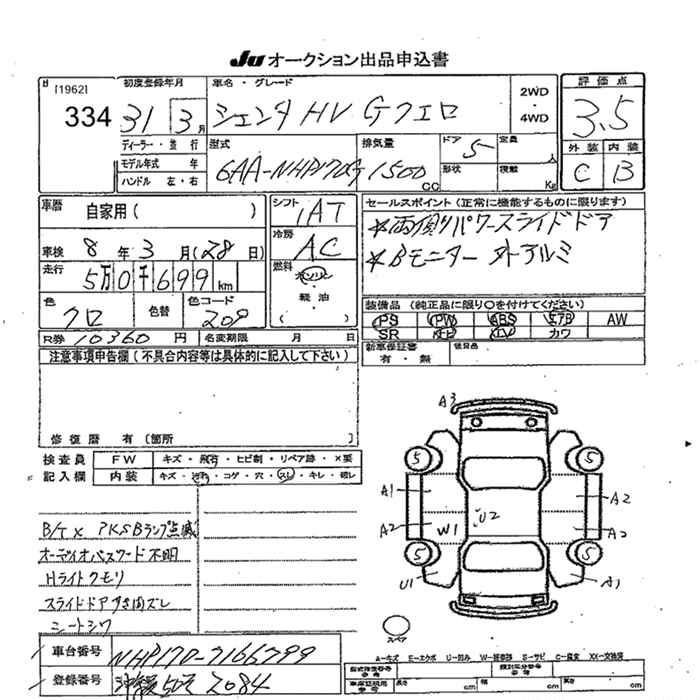 JU オークション出品申込書
[1962]
334
初度登録年月
31 3月
車名・グレード
シエンタ HV G クエロ
2WD
・
4WD
評価点
3.5
外装 内装
C B
ディーラー・並行
モデル年式 年
ハンドル 左・右
型式
6AA-NHP170G
排気量
1500 CC
ドア 5
定員 人
形状
積載 Kg
車歴
自家用( )
車検 8年 3月(28日)
走行 5万0千699km
色
クロ
色替
色コード
209
シフト
IAT
冷房
AC
燃料
ガソリン
・
軽油
( )
セールスポイント(正常に機能するものに限ります)
*両側パワースライドドア
*Bモニター 外アルミ
装備品(純正品に限り○を付けてください)
PS PW ABS エアB AW
SR ナビ TV カワ
新車保証書
有・無
後日品
R券 10360円 名変期限 月 日
注意事項申告欄(不具合内容等は具体的に記入して下さい)
修復歴 有(箇所
検査員 FW キズ・飛石・ヒビ割・リペア跡・×要
記入欄 内装 キズ・汚れ・コゲ・穴・スレ・キレ・破レ
B/T× PKSBランプ点滅
オーディオパスワード不明
Hライトクモリ
スライドドアすき間ズレ
シートシワ
A3
5 5
A1 A2
A2 W1 U2 A2
5 5
U1 A1
スペア
A−キズ E−エクボ U−凹み W−補修跡 S−サビ C−腐食 XX−交換済
車台番号 NHP170-7166799
登録番号 2084
長さ cm 幅 cm 高さ cm